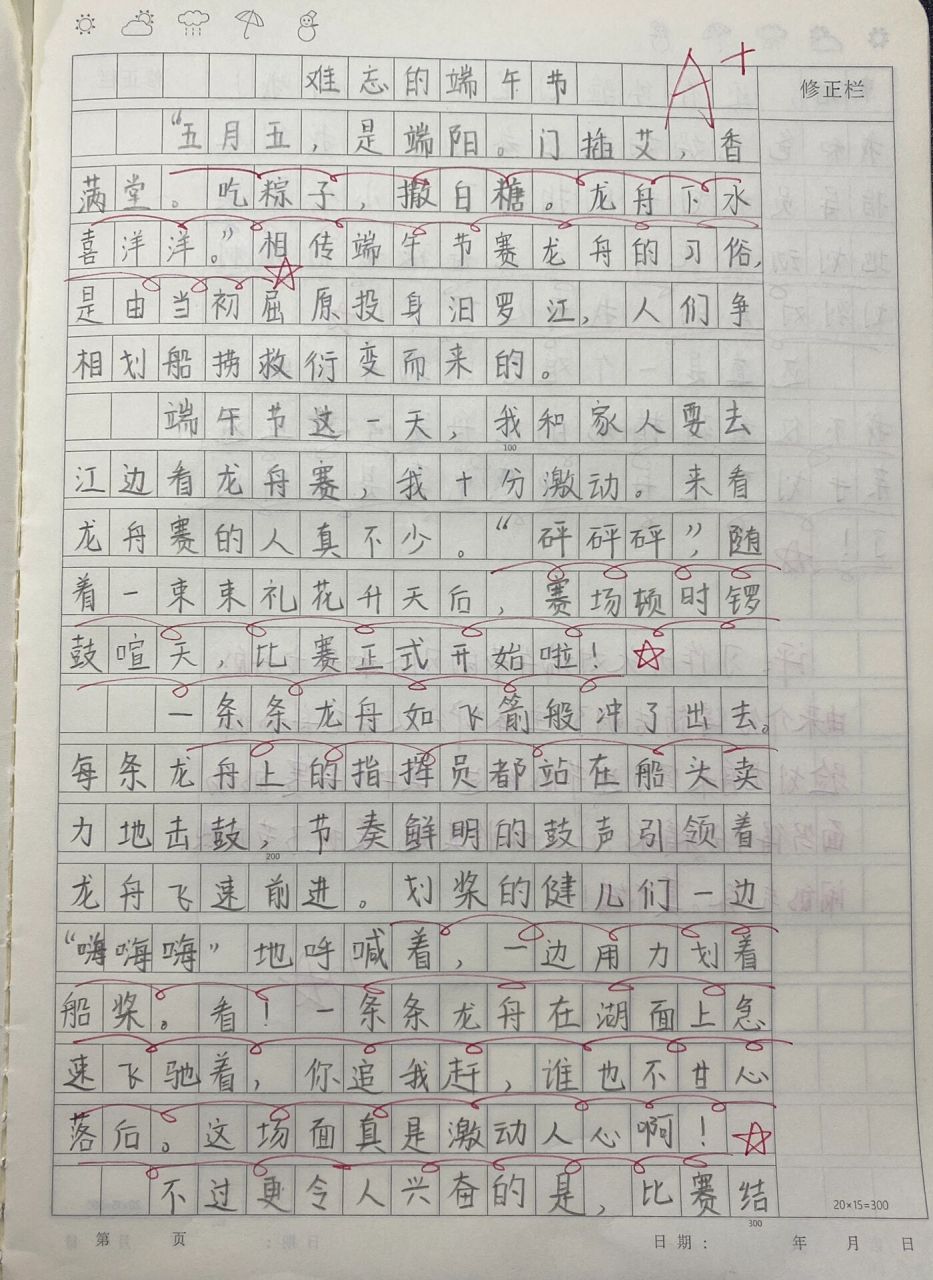 难忘的端午节
A+
修正栏
“五月五,是端阳。门插艾,香
满堂。吃粽子,撒白糖。龙舟下水
喜洋洋。”相传端午节赛龙舟的习俗,
是由当初屈原投身汨罗江,人们争
相划船捞救衍变而来的。
端午节这一天,我和家人要去
100
江边看龙舟赛,我十分激动。来看
龙舟赛的人真不少。“砰砰砰”,随
着一束束礼花升天后,赛场顿时锣
鼓喧天,比赛正式开始啦!
一条条龙舟如飞箭般冲了出去。
每条龙舟上的指挥员都站在船头卖
力地击鼓,节奏鲜明的鼓声引领着
200
龙舟飞速前进。划桨的健儿们一边
“嗨嗨嗨”地呼喊着,一边用力划着
船桨。看!一条条龙舟在湖面上急
速飞驰着,你追我赶,谁也不甘心
落后。这场面真是激动人心啊!
不过更令人兴奋的是,比赛结
20×15=300
300
第 页 日期: 年 月 日